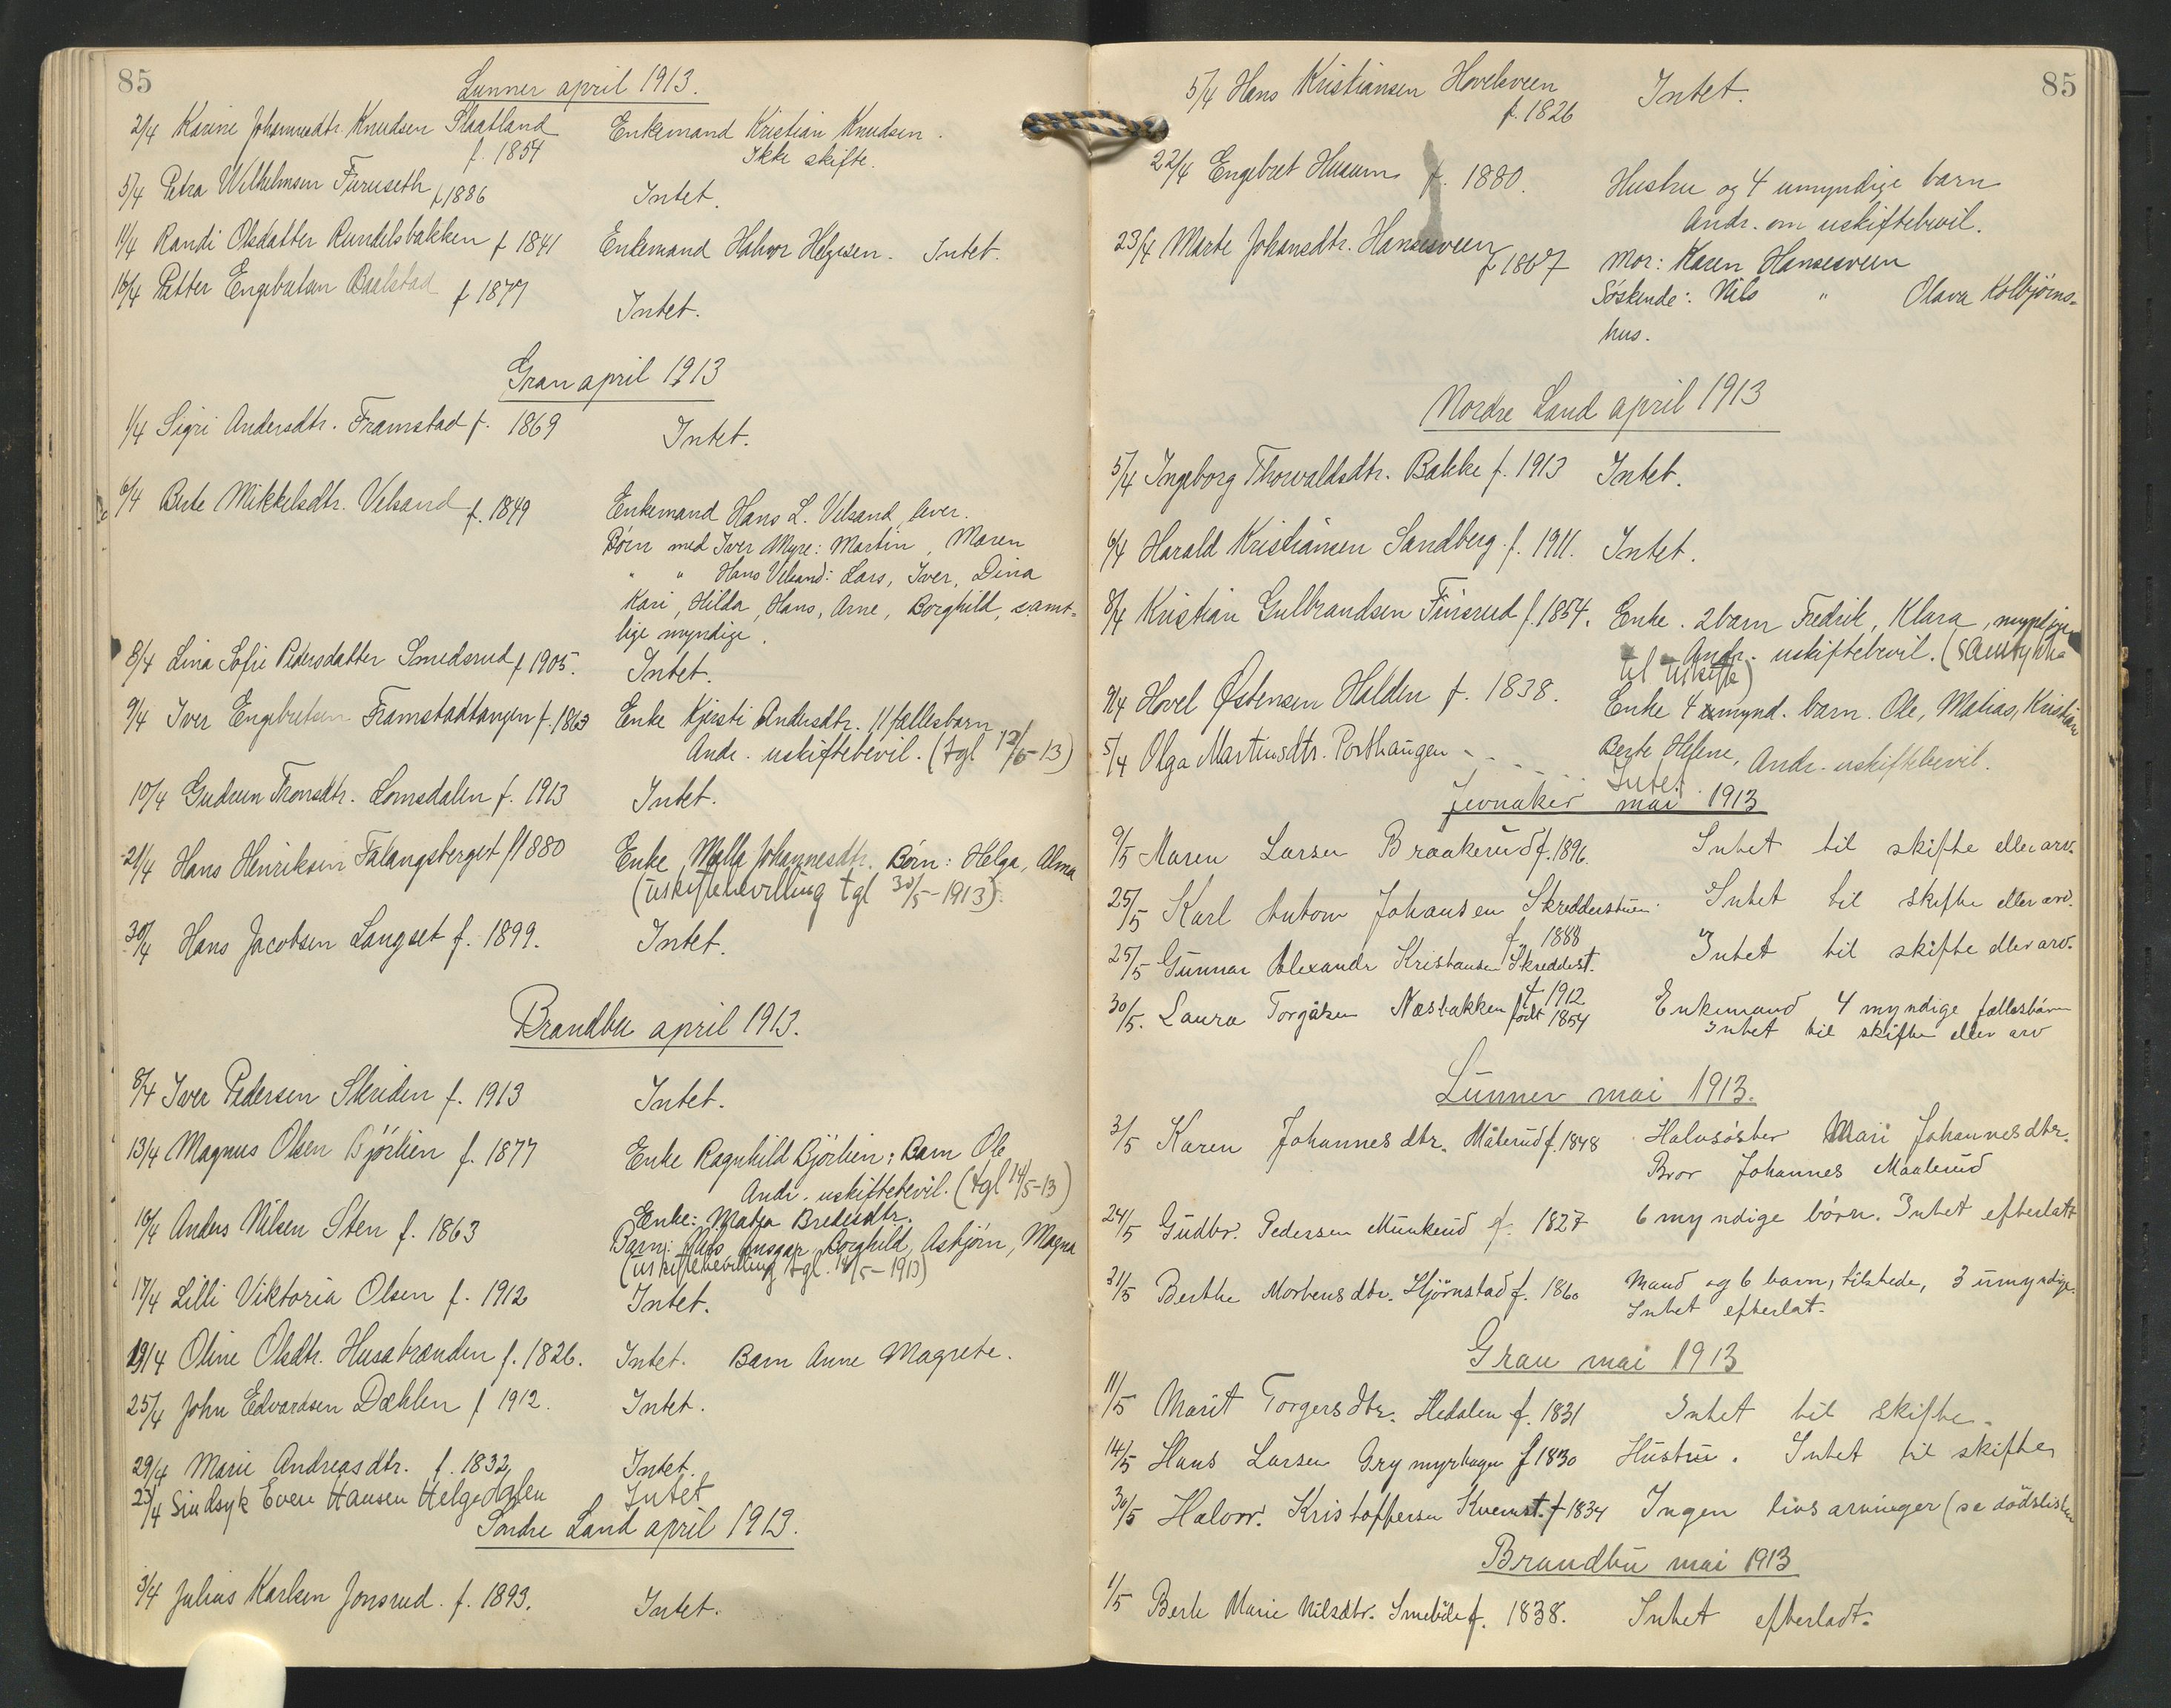 85
Lunner april 1913.
2/4 Karine Johannesdtr. Knudsen Slaatland f. 1854 Enkemand Kristian Knudsen.
Ikke skifte.
5/4 Petra Wilhelmsen Furuseth f 1886 Intet.
11/4 Randi Olsdatter Rundelsbakken f 1841 Enkemand Halvor Helgesen. Intet.
16/4 Petter Engebretsen Baalstad f 1877 Intet.
Gran april 1913
1/4 Sigri Andersdtr. Framstad f. 1869 Intet.
6/4 Berte Mikkelsdtr. Velsand f. 1849 Enkemand Hans L. Velsand lever.
Börn med Iver Myre: Martin, Maren
" " Hans Velsand: Lars, Iver, Dina
Kari, Hilda, Hans, Arne, Borghild, samt-
lige myndige.
8/4 Lina Sofie Pedersdatter Smedsrud f 1905. Intet.
9/4 Iver Engebretsen Framstadtangen f. 1863 Enke Kjersti Andersdtr. 11 fællesbarn
Andr. uskiftebevil. (tgl 12/5-13)
10/4 Gudrun Tronsdtr. Lomsdalen f. 1913 Intet.
21/4 Hans Henriksen Falangsberget f 1880 Enke Mella Johannesdtr. Börn: Helga, Alma
(uskiftebevilling tgl 30/5-1913)
30/4 Hans Jacobsen Langset f. 1899. Intet.
Brandbu april 1913.
8/4 Iver Pedersen Skriden f. 1913 Intet.
13/4 Magnus Olsen Björlien f. 1877 Enke Ragnhild Björlien; Barn Ole
Andr. uskiftebevil. (tgl 14/5-13)
16/4 Anders Nilsen Sten f. 1863 Enke: Matea Bredesdtr.
Barn: Nils, Ansgar, Borghild, Asbjörn, Magna
(uskiftebevilling tgl. 14/5-1913)
17/4 Lilli Viktoria Olsen f. 1912 Intet.
19/4 Oline Olsdtr. Husabrænden f. 1826. Intet. Barn Anne Magrete.
25/4 John Edvardsen Dæhlen f 1912. Intet.
29/4 Marie Andreasdtr. f. 1832 Intet.
23/4 Sindsyk Even Hansen Helgedalen Intet
Søndre Land april 1913.
3/4 Julius Karlsen Jonsrud. f. 1893. Intet.
85
5/4 Hans Kristiansen Hovelsveen f. 1826 Intet.
22/4 Engebret Husum f. 1880. Hustru og 4 umyndige barn
Andr. om uskiftebevil.
23/4 Marte Johansdtr. Hansesveen f 1867 Mor: Karen Hansesveen
Søskende: Nils " Olava Kolbjørns-
hus.
Nordre Land april 1913
5/4 Ingeborg Thorvaldsdtr. Bakke f. 1913 Intet.
6/4 Harald Kristiansen Sandberg f. 1911. Intet.
8/4 Kristian Gulbrandsen Finsrud f. 1854. Enke. 2 barn Fredrik, Klara,
Andr. uskiftebevil. (samtykke
til uskifte)
9/4 Hovel Østensen Halden f. 1838. Enke 4 mynd. barn. Ole, Matias, Kristian
Berte Helene, Andr. uskiftebevil.
5/4 Olga Martinsdtr. Porthaugen - - - Intet.
Jevnaker mai 1913
9/5 Maren Larsen Braakerud f. 1896. Intet til skifte eller arv.
25/5 Karl Anton Johansen Skredderstuen f. 1888 Intet til skifte eller arv.
25/5 Gunnar Alexandr Kristansen Skreddest. f. 1912 Intet til skifte eller arv.
30/5. Laura Torgersen Næsbakken født 1854 Enkemand 4 myndige fællesbörn
Intet til skifte eller arv
Lunner mai 1913.
3/5 Karen Johannesdtr. Målerud f. 1848 Halvsöster Mari Johannesdtr.
Bror Johannes Maalerud
24/5 Gudbr. Pedersen Munkerud f. 1827 6 myndige börn. Intet efterlatt
31/5 Berthe Mortensdtr. Hjörnstad f. 1860 Mand og 6 barn, tilstede, 3 umyndige.
Intet efterlat.
Gran mai 1913
11/5 Marit Torgersdtr. Hedalen f. 1831 Intet til skifte.
14/5 Hans Larsen Grymyrhagen f 1830 Hustru. Intet til skifte
30/5 Halvor Kristoffersen Kvernst. f 1834 Ingen livsarvinger (se dödslisten
Brandbu mai 1913
1/5 Berte Marie Nilsdtr. f. 1838. Intet efterladt.